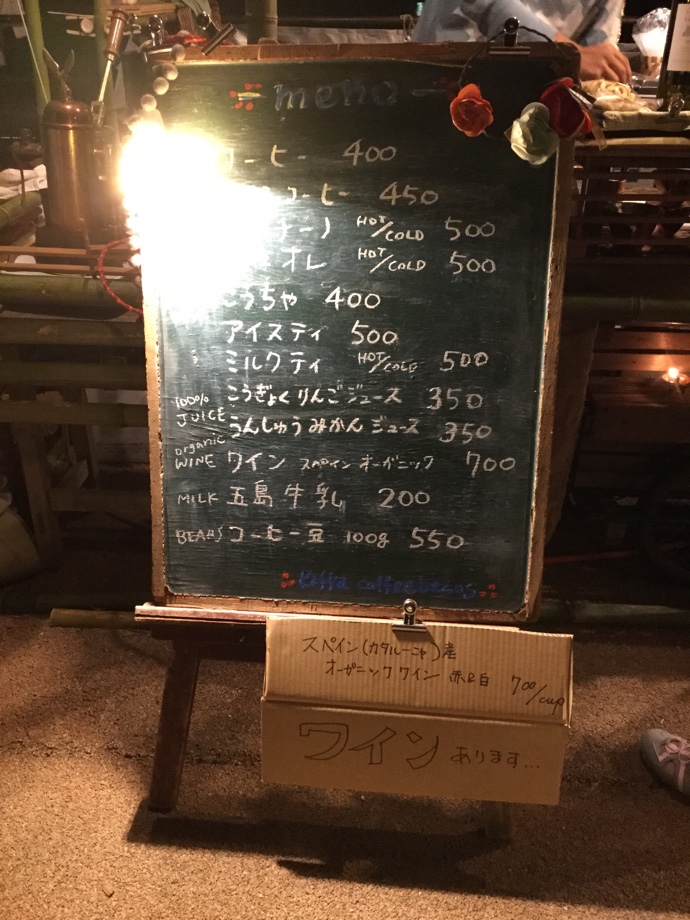 menu
コーヒー 400
コーヒー 450
HOT/COLD 500
オレ HOT/COLD 500
こうちゃ 400
アイスティ 500
ミルクティ HOT/COLD 500
100% JUICE こうぎょくりんごジュース 350
うんしゅうみかんジュース 350
organic WINE ワイン スペインオーガニック 700
MILK 五島牛乳 200
BEANS コーヒー豆 100g 550
coffee beans
スペイン(カタルーニャ)産
オーガニックワイン 赤&白 700/cup
ワイン あります...